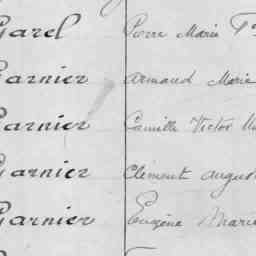 Garel Pierre Marie
Garnier Armand Marie
Garnier Camille Victor
Garnier Clément August
Garnier Eugène Marie